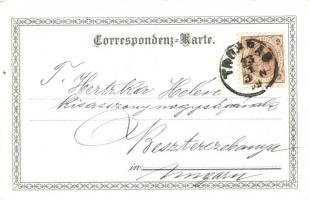 Correspondenz-Karte.
T. Hertzka Helén
kisasszony nagyságának
Beszterczebánya
in Ungarn